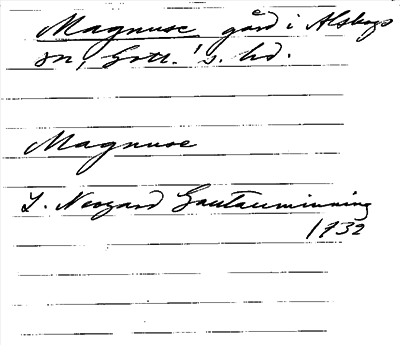 Magnuse gård i Alskogs
sn, Gotl. s. hd.
Magnuse
L. Neogard Gautauminning
1732